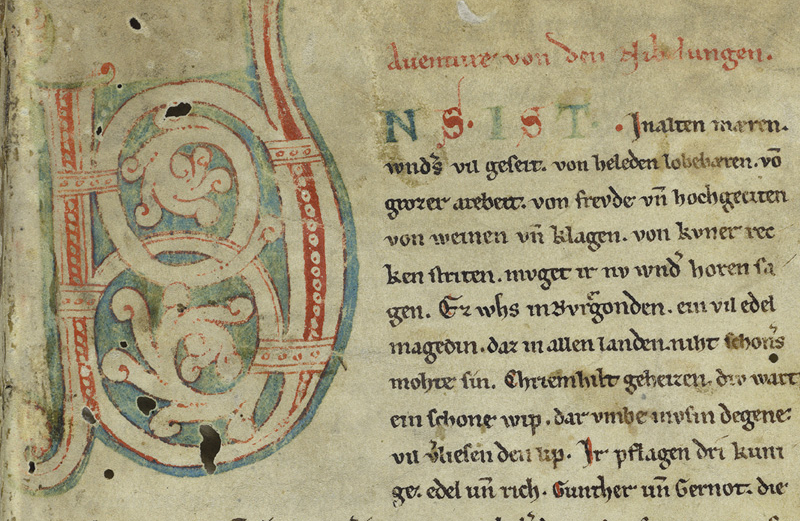 Auenture von den Nibelungen.
VNS. IST. Jn alten mæren.
wnds vil geseit. von heleden lobebæren. vō
grozer arebeit. von frevde vn̄ hochgeciten
von weinen vn̄ klagen. von kvner rec
ken striten. mvget ir nv wnd͛ horen sa
gen. Ez whs in Bvrgonden. ein vil edel
magedin. daz in allen landen. niht schon͛s
mohte sin. Chriemhilt geheizen. div wart
ein schone wip. dar vmbe mvsin degene
vil v͛liesen den lip. Ir pflagen dri kuni
ge. edel vn̄ rich. Gunther vn̄ Gernot. die